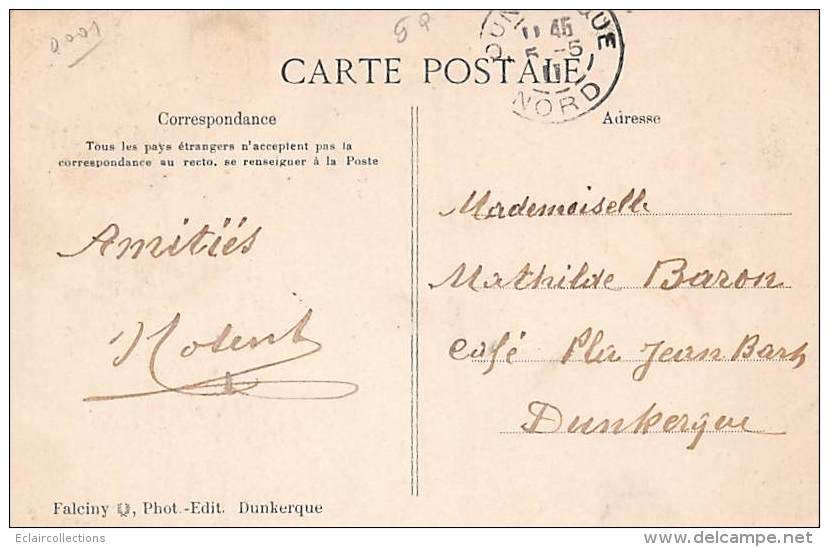 CARTE POSTALE
Correspondance
Tous les pays étrangers n'acceptent pas la
correspondance au recto, se renseigner à la Poste
Amitiés
Adresse
Mademoiselle
Mathilde Baron
Café Pla Jean Bart
Dunkerque
DUNKERQUE
45
5-5
11
NORD
Falciny, Phot.-Edit. Dunkerque
Eclaircollections
www.delcampe.net